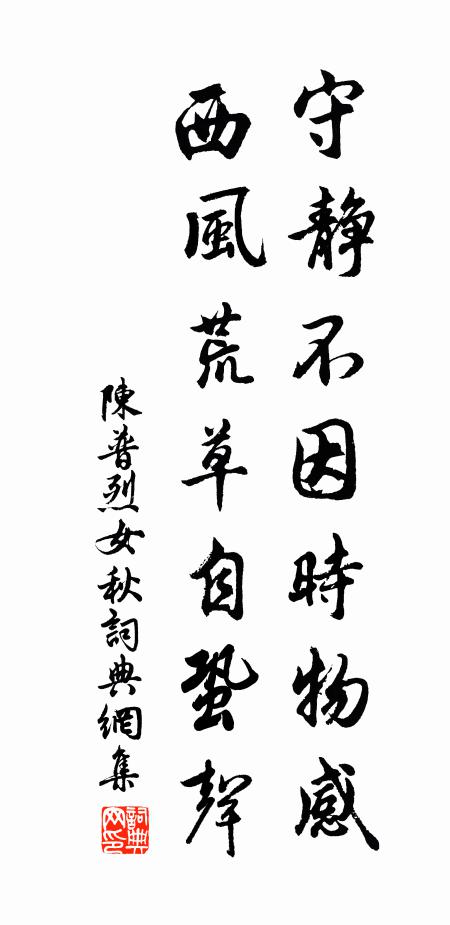 守靜不因時物感
西風荒草自蛩聲
陳普烈女秋詞典網集
詞典網印